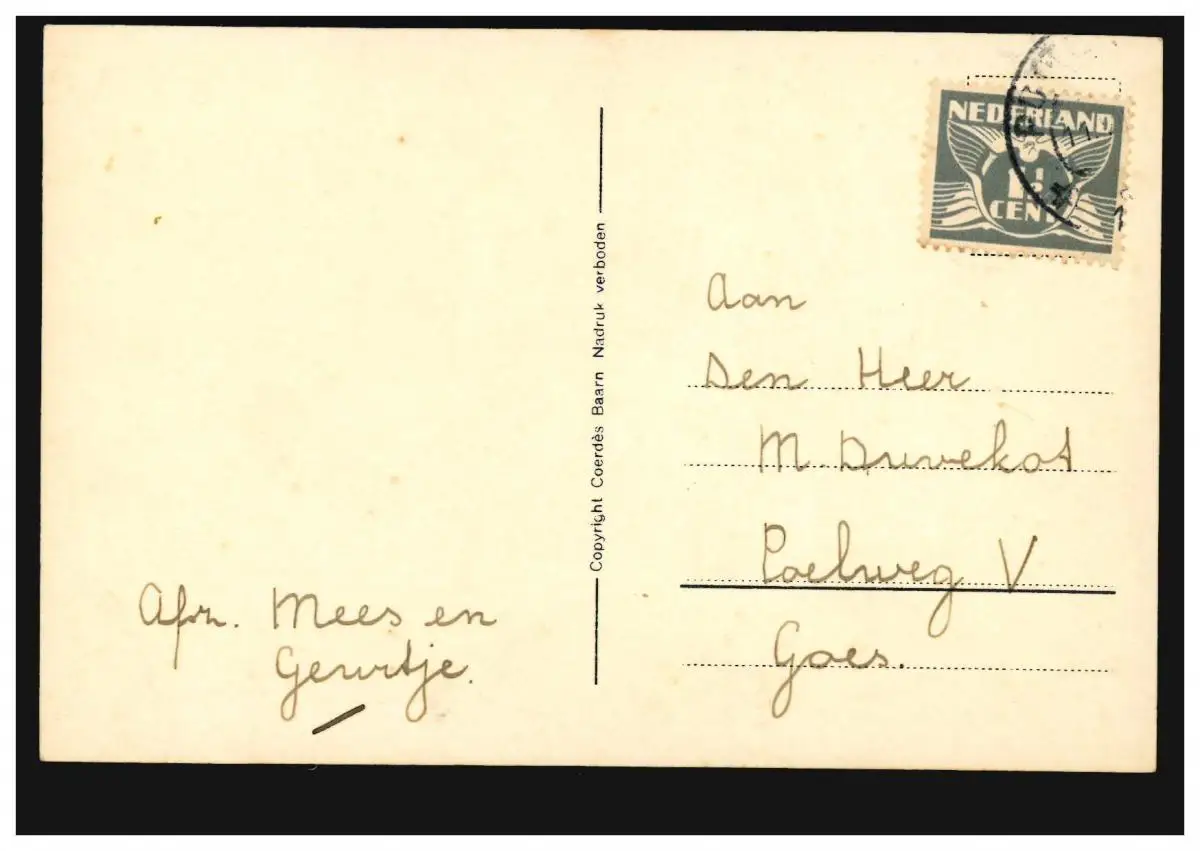 NEDERLAND
1½
CENT
Copyright Coerdès Baarn Nadruk verboden
Aan
Den Heer
M. Duvekot
Poelweg V
Goes.
Afz. Mees en
Geurtje.